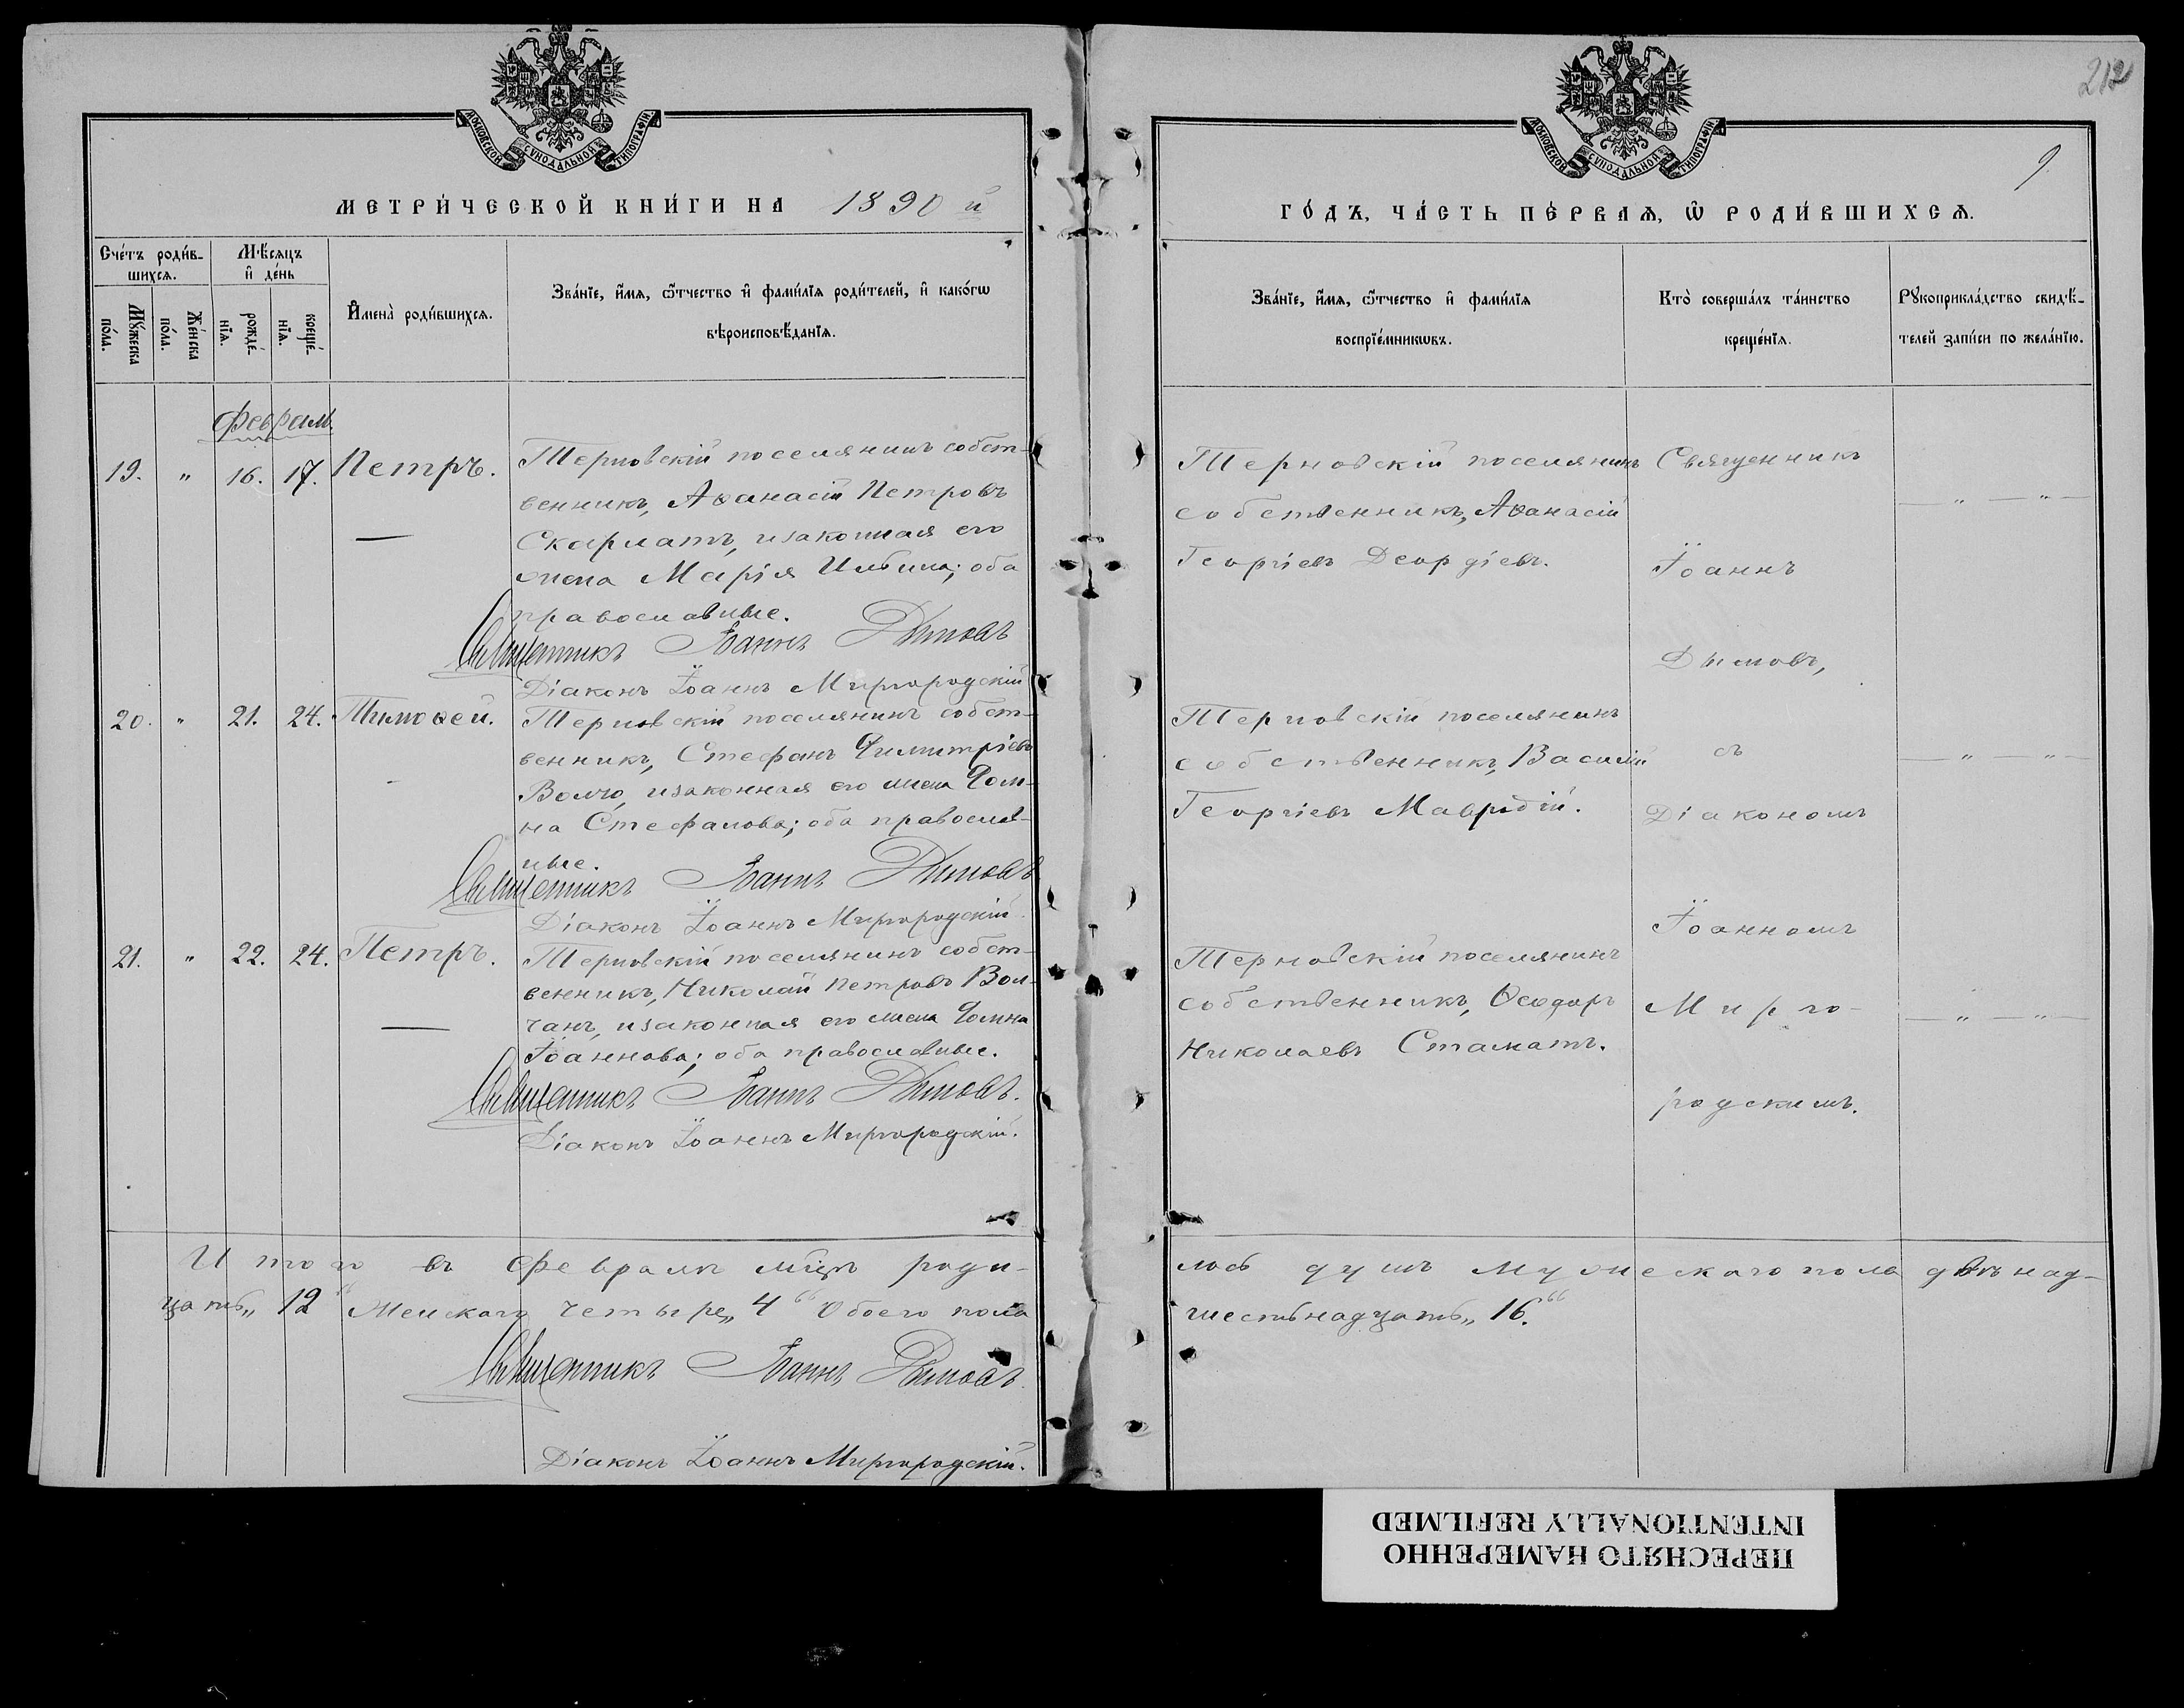 МОСКОВСКОЙ СѴНОДАЛЬНОЙ ТИПОГРАФІИ
МЕТРИ́ЧЕСКОЙ КНИ́ГИ НА 1890 й
Сче́тъ роди́в-
шихсѧ.
Мѣ́сяцъ
и҆ де́нь
Мꙋ́жеска
по́ла.
Же́нска
по́ла.
рожде́-
нїѧ.
креще́-
нїѧ.
И҆мена̀ роди́вшихсѧ.
Зва́нїе, и҆́мѧ, ѻ҆́тчество и҆ фами́лїѧ роди́телей, и҆ како́гѡ
вѣроисповѣ́данїѧ.
Февраль.
19. " 16. 17. Петръ.
Терновскій поселянинъ собст-
венникъ, Аѳанасій Петровъ
Скарлатъ, и законная его
жена Марія Ильина; оба
православные.
Священникъ Іоаннъ Дымовъ
Діаконъ Іоаннъ Миргородскій
20. " 21. 24. Тимоѳей.
Терновскій поселянинъ собст-
венникъ, Стефанъ Димитріевъ
Волчо, и законная его жена Дом-
на Стефанова; оба православ-
ные.
Священникъ Іоаннъ Дымовъ
Діаконъ Іоаннъ Миргородскій.
21. " 22. 24. Петръ.
Терновскій поселянинъ собст-
венникъ, Николай Петровъ Вол-
чанъ, и законная его жена Домна
Іоаннова; оба православные.
Священникъ Іоаннъ Дымовъ.
Діаконъ Іоаннъ Миргородскій.
Итого въ Февралѣ мѣцѣ роди-
цать „12“ Женскаго четыре „4“ Обоего пола
Священникъ Іоаннъ Дымовъ.
Діаконъ Іоаннъ Миргородскій.
212
9
МОСКОВСКОЙ СѴНОДАЛЬНОЙ ТИПОГРАФІИ
ГО́ДЪ, ЧА́СТЬ ПЕ́РВАѦ, Ѽ РОДИ́ВШИХСѦ.
Зва́нїе, и҆́мѧ, ѻ҆́тчество и҆ фами́лїѧ
воспрїе́мникѡвъ.
Кто̀ соверша́лъ та́инство
креще́нїѧ.
Рꙋкоприкла́дство свидѣ́-
телей запи́си по жела́нїю.
Терновскій поселянинъ
собственникъ, Аѳанасій
Георгіевъ Деордіевъ.
Терновскій поселянинъ
собственникъ, Василій
Георгіевъ Мавродій.
Терновскій поселянинъ
собственникъ, Ѳеодоръ
Николаевъ Стаматъ.
Священникъ
Іоаннъ
Дымовъ,
съ
Діакономъ
Іоанномъ
Мирго-
родскимъ.
— " — " —
— " — " —
— " — " —
лось душъ мужескаго пола двѣнад-
шестьнадцать „16.“
ПЕРЕСНЯТО НАМЕРЕННО
INTENTIONALLY REFILMED